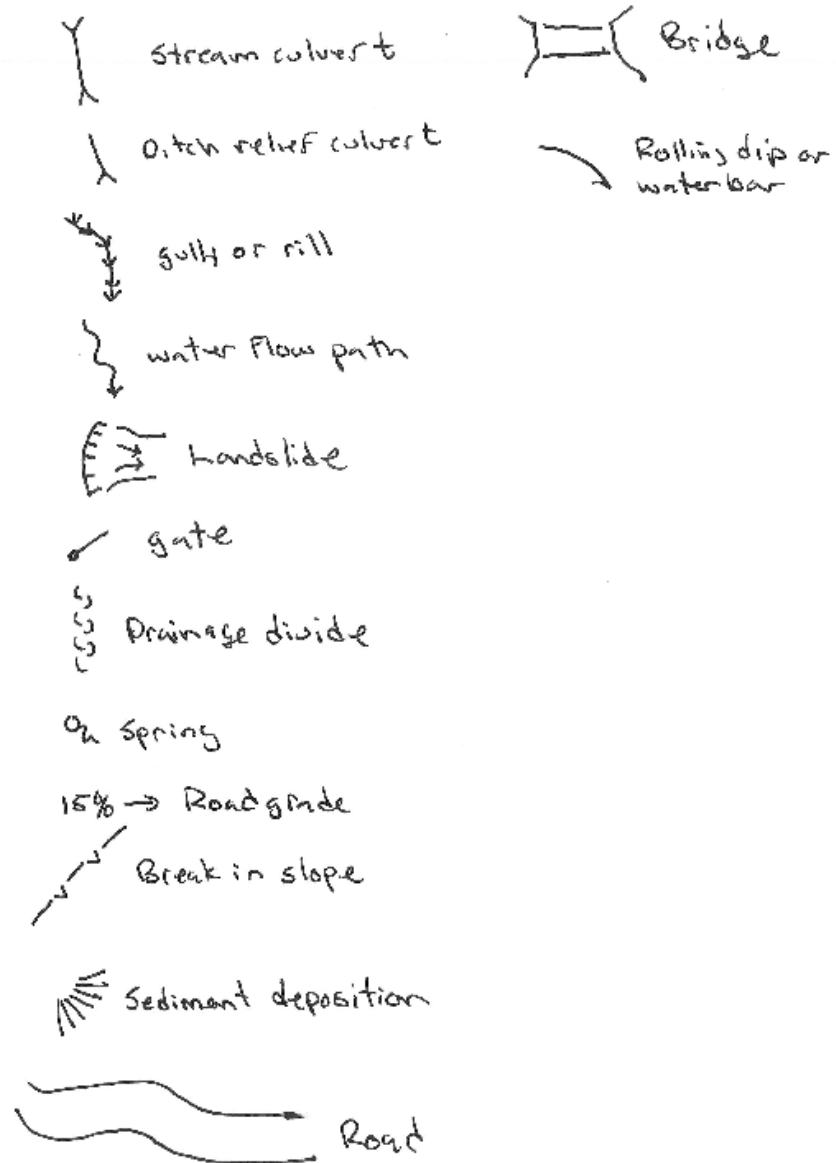 Stream culvert
Ditch relief culvert
gully or rill
water Flow path
Landslide
gate
Drainage divide
Spring
15% → Road grade
Break in slope
Sediment deposition
Road
Bridge
Rolling dip or
waterbar